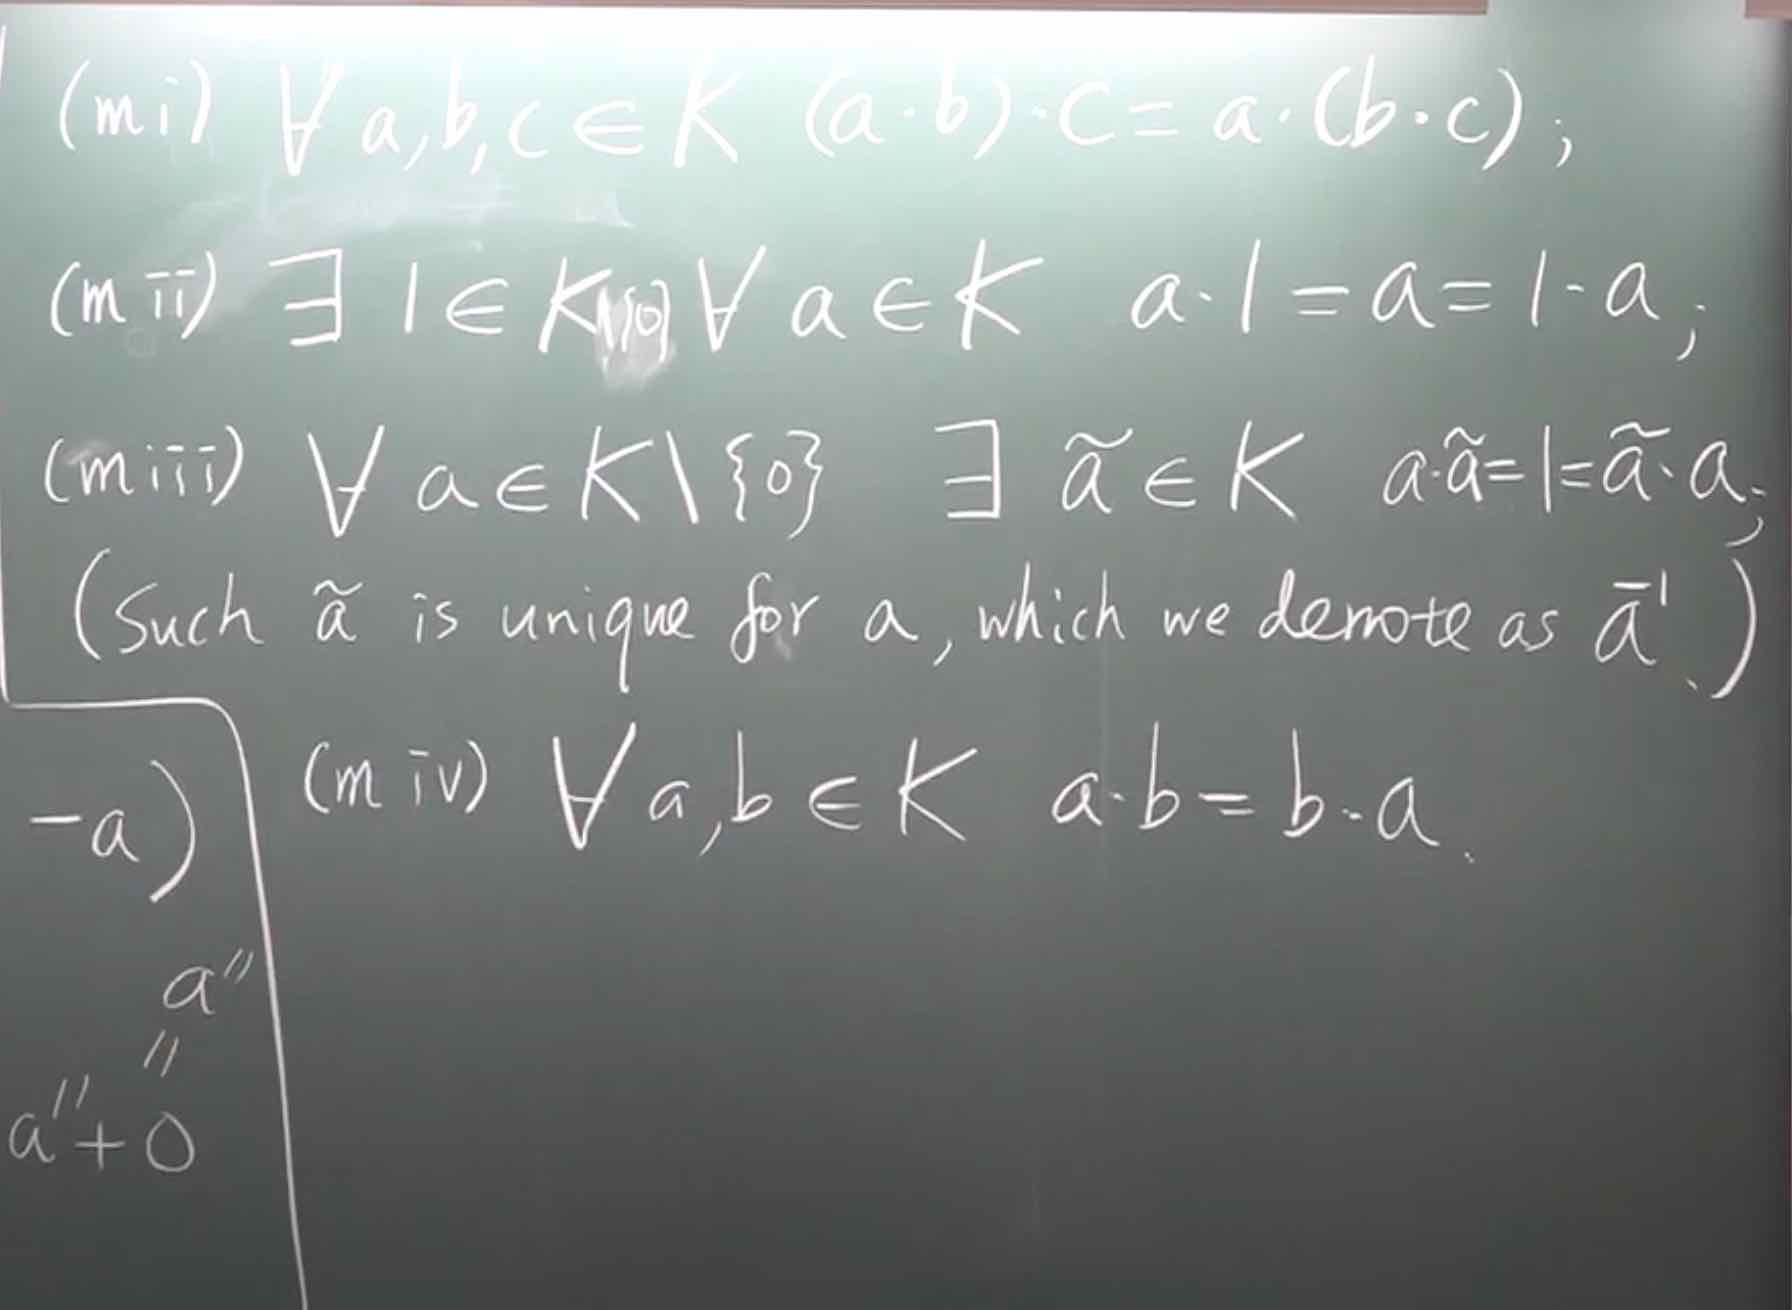 (mi) ∀ a,b,c ∈ K (a·b)·c = a·(b·c) ;
(mii) ∃ 1 ∈ K\{0} ∀ a ∈ K a·1 = a = 1·a ;
(miii) ∀ a ∈ K \ {0} ∃ ã ∈ K a·ã = 1 = ã·a ;
(Such ã is unique for a, which we denote as a⁻¹.)
(miv) ∀ a,b ∈ K a·b = b·a .
-a)
a″
〃
a″+0